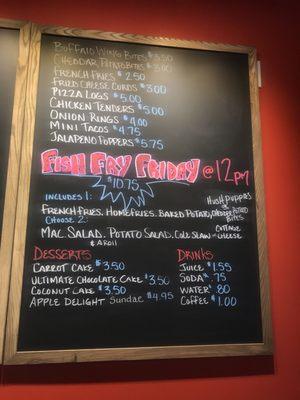 Buffalo Wing Bites $3.50
Cheddar Potato Bites $3.00
French Fries $2.50
Fried Cheese Curds $3.00
Pizza Logs $5.00
Chicken Tenders $5.00
Onion Rings $4.00
Mini Tacos $4.75
Jalapeno Poppers $5.75
Fish Fry Friday @ 12pm
$10.75
Includes 1:
Hush Puppies
French Fries, Home Fries, Baked Potato, Cheddar Potato Bites
Choose 2:
Mac Salad, Potato Salad, Cole Slaw or Cottage Cheese
& a Roll
Desserts
Carrot Cake $3.50
Ultimate Chocolate Cake $3.50
Coconut Cake $3.50
Apple Delight Sundae $4.95
Drinks
Juice $1.55
Soda .75
Water .80
Coffee $1.00